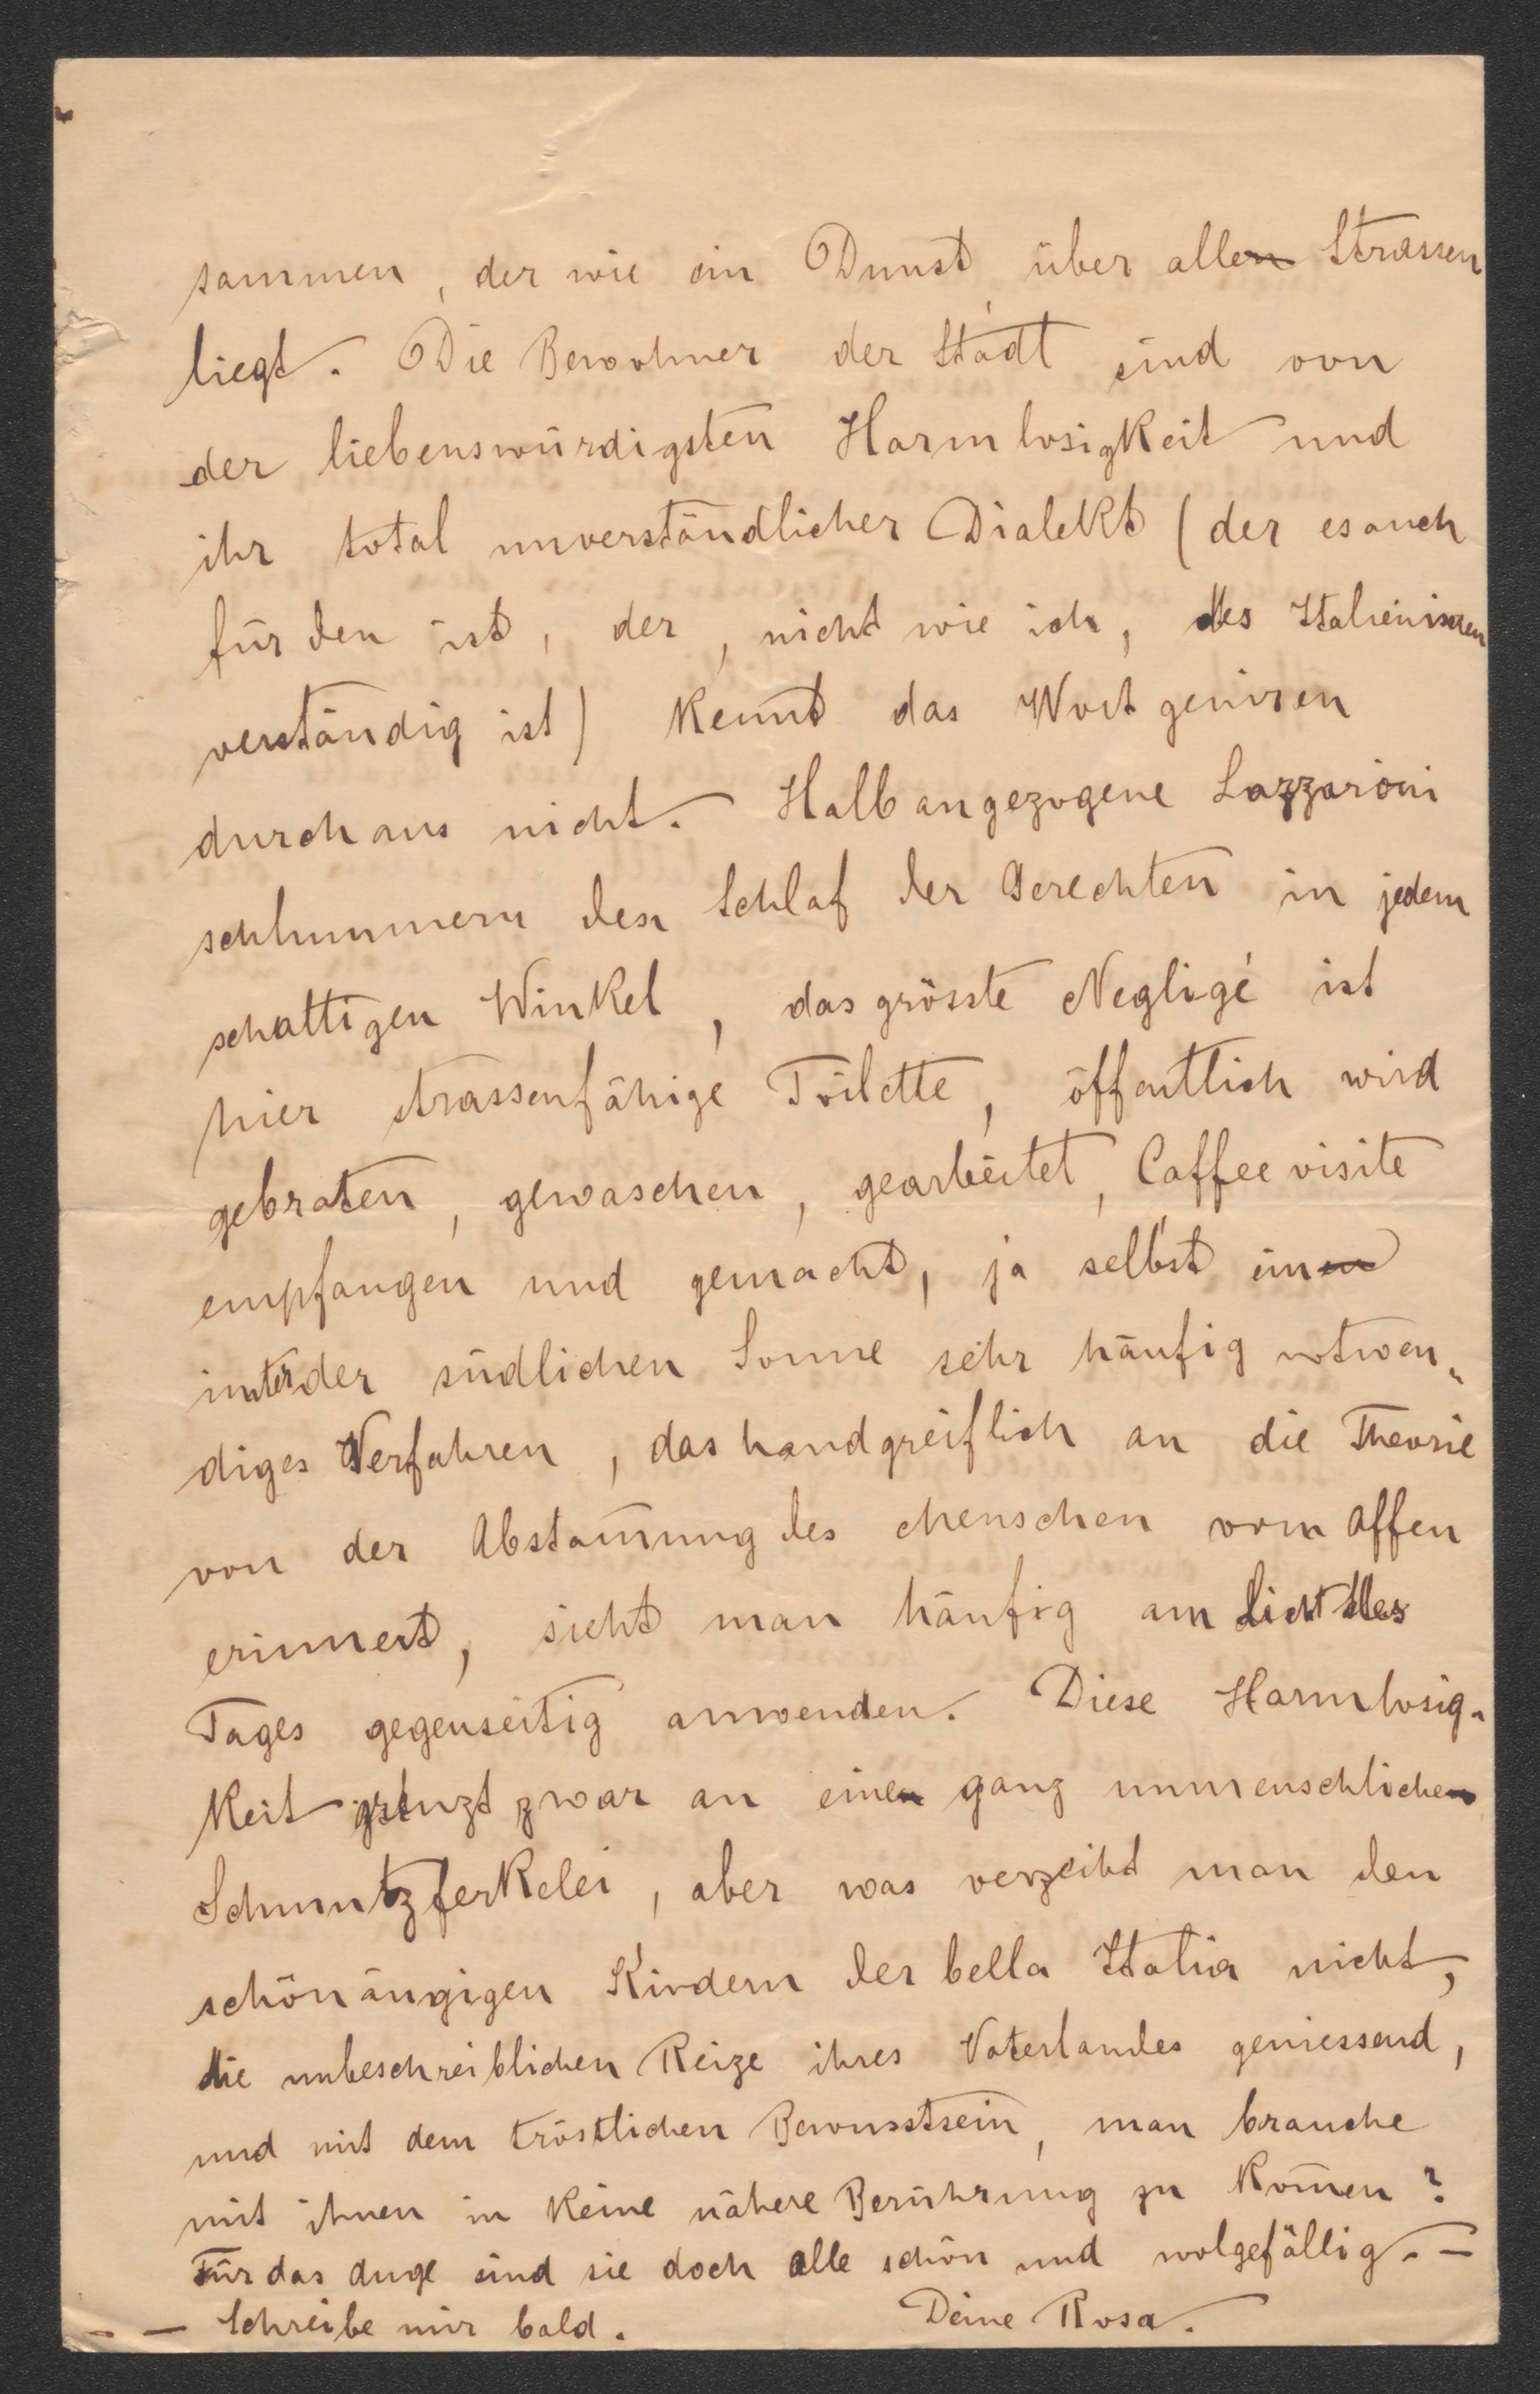 sammen, der wie ein Dunst über allen Strassen
liegt. Die Bewohner der Stadt sind von
der liebenswürdigsten Harmlosigkeit und
ihr total unverständlicher Dialekt (der es auch
für den ist, der, nicht wie ich, des Italienischen
verständig ist) kennt das Wort geniren
durchaus nicht. Halb angezogene Lazzaroni
schlummern den Schlaf der Gerechten in jedem
schattigen Winkel, das grösste Negligé ist
hier strassenfähige Toilette, öffentlich wird
gebraten, gewaschen, gearbeitet, Caffeevisite
empfangen und gemacht, ja selbst ein
unter der südlichen Sonne sehr häufig notwen„
diges Verfahren, das handgreiflich an die Theorie
von der Abstam̄ung des Menschen vom Affen
erinnert, sieht man häufig am Licht des
Tages gegenseitig anwenden. Diese Harmlosig-
keit grenzt zwar an eine ganz unmenschliche
Schmutzferkelei, aber was verzeiht man den
schönäugigen Kindern der bella Italia nicht,
die unbeschreiblichen Reize ihres Vaterlandes geniessend,
und mit dem tröstlichen Bewusstsein, man brauche
mit ihnen in keine nähere Berührung zu kom̄en?
Für das Auge sind sie doch alle schön und wolgefällig. –
– – Schreibe mir bald. Deine Rosa.